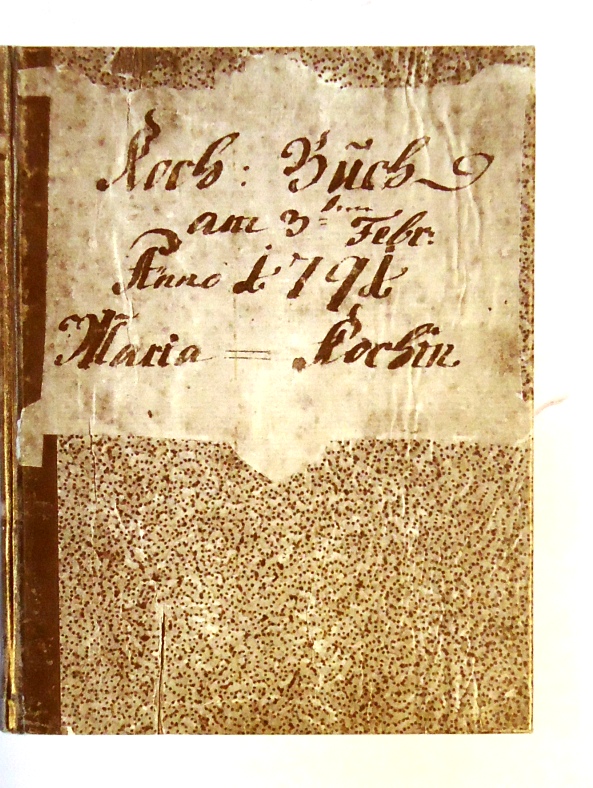 Koch: Bũch
am 3ten Febr:
Anno 1791
Maria = Kochin